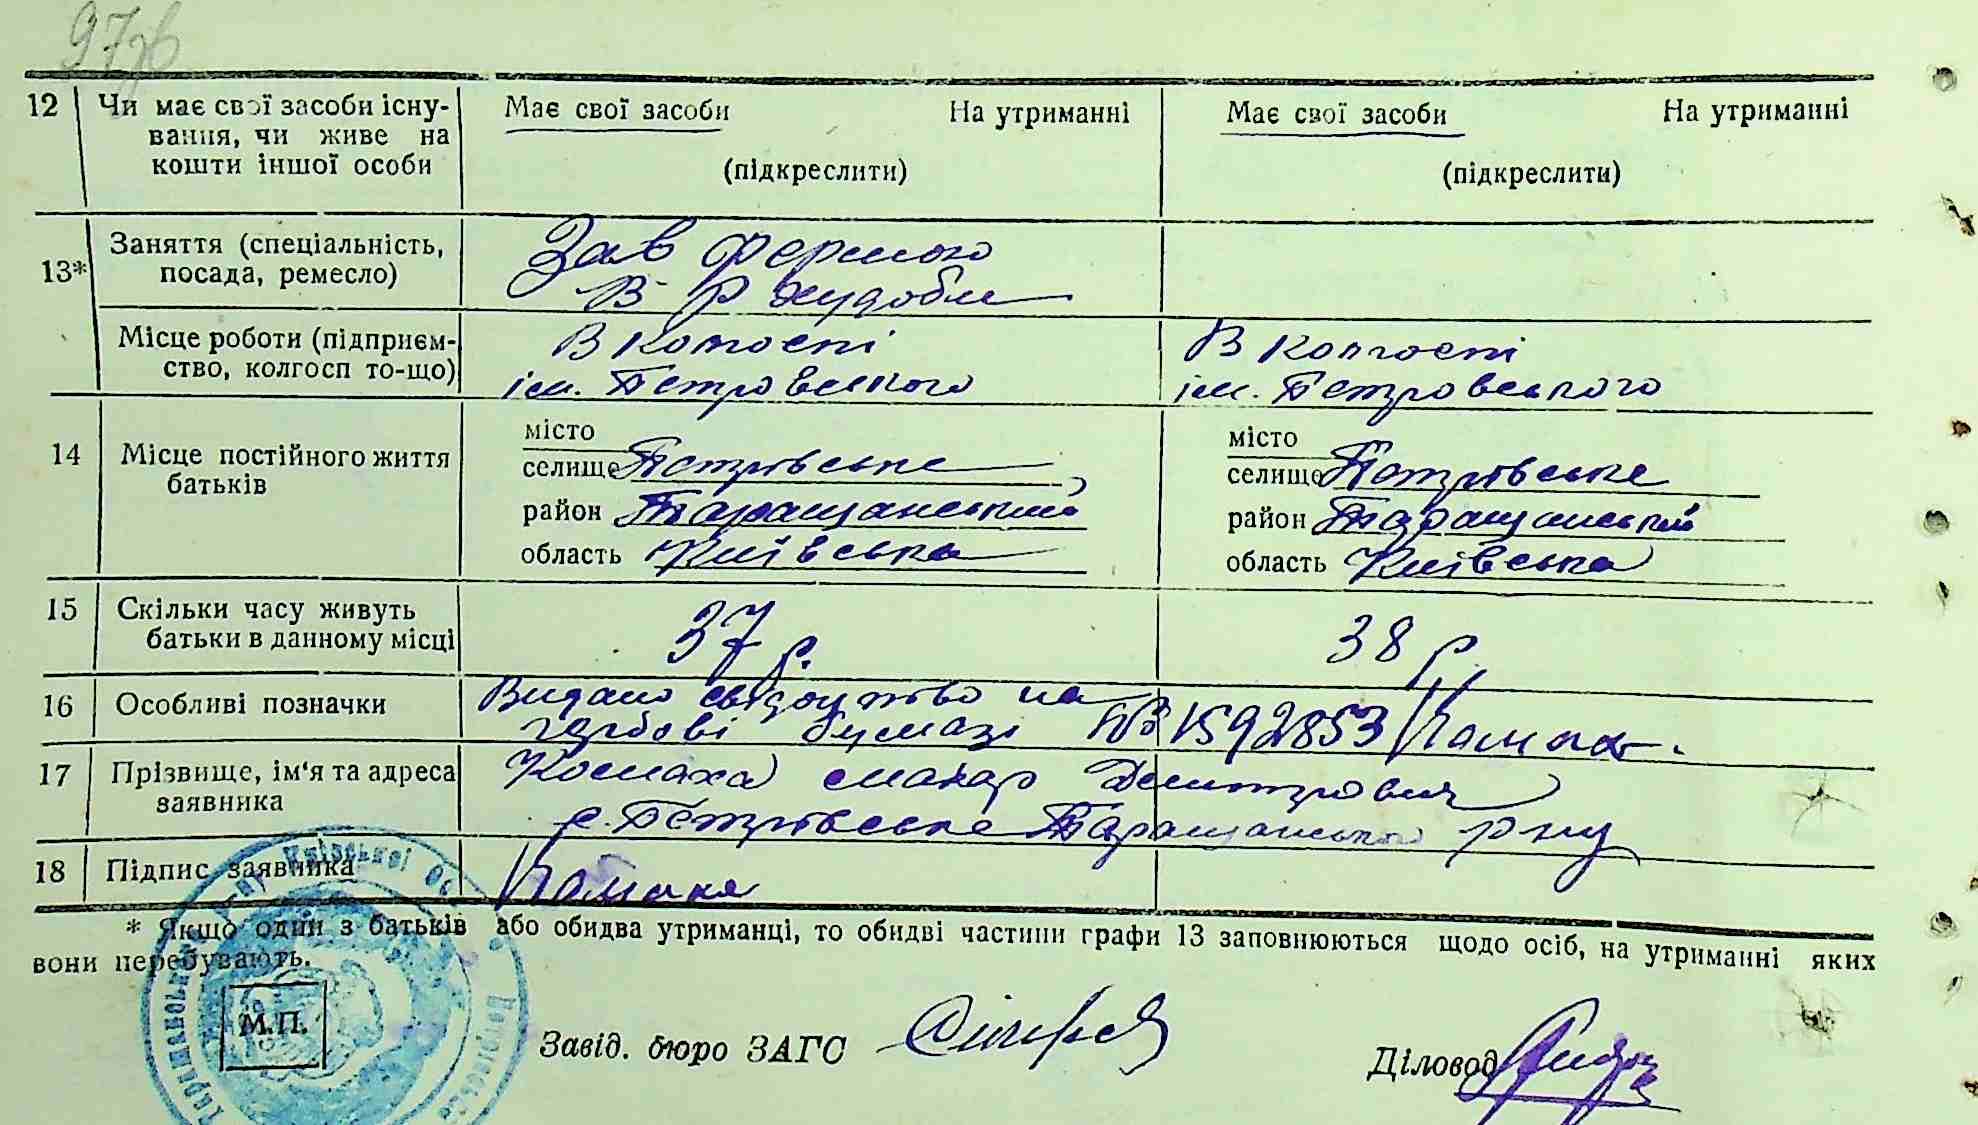 97зв
12 Чи має свої засоби існу-
вання, чи живе на
кошти іншої особи
Має свої засоби На утриманні
(підкреслити)
Має свої засоби На утриманні
(підкреслити)
13* Заняття (спеціальність,
посада, ремесло)
Зав фермою
В-Р худоби
Місце роботи (підприєм-
ство, колгосп то-що)
В колгоспі
ім. Петровського
В колгоспі
ім. Петровського
14 Місце постійного життя
батьків
місто
селище Петрівське
район Таращанський
область Київська
місто
селище Петрівське
район Таращанський
область Київська
15 Скільки часу живуть
батьки в данному місці
37 р.
38 р.
16 Особливі позначки
Видано свідоцтво на
гербові бумазі 1592853
17 Прізвище, ім'я та адреса
заявника
Макар Дмитрович
с. Петрівське Таращанського р-ну
18 Підпис заявника
* Якщо один з батьків або обидва утриманці, то обидві частини графи 13 заповнюються щодо осіб, на утриманні яких
вони перебувають.
М.П.
Завід. бюро ЗАГС
Діловод